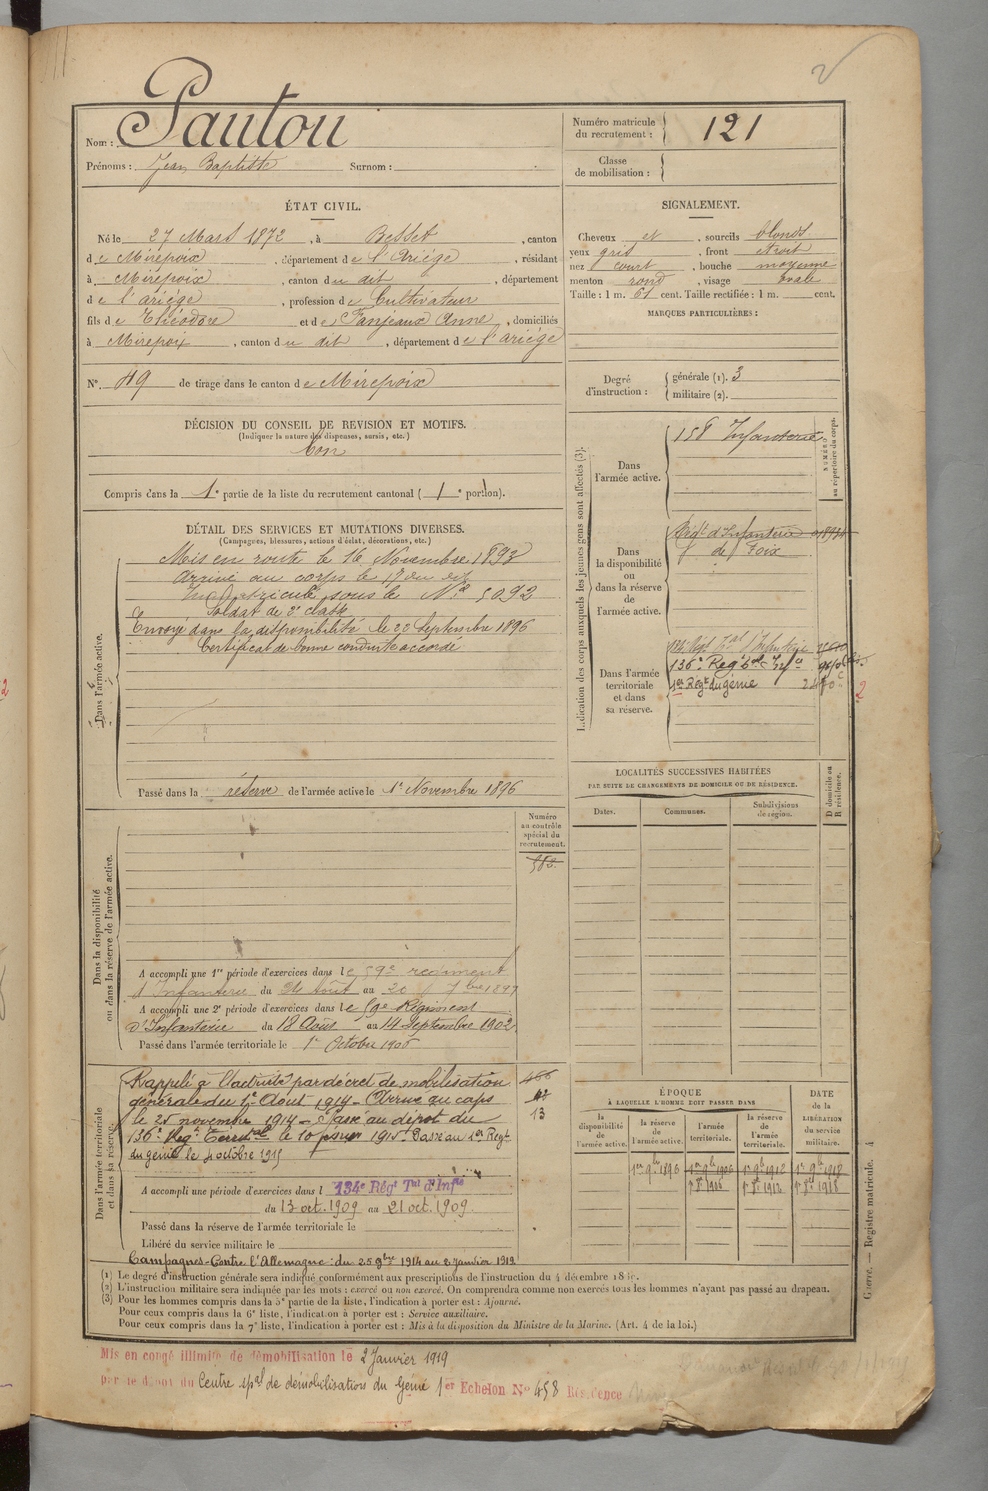 Nom : Pautou
Prénoms : Jean Baptiste Surnom :
Numéro matricule du recrutement : 121
Classe de mobilisation :
ÉTAT CIVIL.
Né le 27 Mars 1872, à Besset, canton
de Mirepoix, département de l'Ariége, résidant
à Mirepoix, canton du dit, département
de l'ariége, profession de Cultivateur
fils de Théodore et de Fanjeaux Anne, domiciliés
à Mirepoix, canton du dit, département de l'ariége
N° 49 de tirage dans le canton de Mirepoix
SIGNALEMENT.
Cheveux et, sourcils blonds
yeux gris, front étroit
nez court, bouche moyenne
menton rond, visage ovale
Taille : 1 m. 61 cent. Taille rectifiée : 1 m. cent.
MARQUES PARTICULIÈRES :
Degré d'instruction :
générale (1). 3
militaire (2).
DÉCISION DU CONSEIL DE REVISION ET MOTIFS.
(Indiquer la nature des dispenses, sursis, etc.)
bon
Compris dans la 1e partie de la liste du recrutement cantonal ( 1e portion).
DÉTAIL DES SERVICES ET MUTATIONS DIVERSES.
(Campagnes, blessures, actions d'éclat, décorations, etc.)
Dans l'armée active.
Mis en route le 16 Novembre 1893
Arrivé au corps le 17 du dit
Immatriculé sous le N° 5092
Soldat de 2e classe
Envoyé dans la disponibilité le 20 Septembre 1896
Certificat de bonne conduite accordé
Passé dans la réserve de l'armée active le 1er Novembre 1896
Indication des corps auxquels les jeunes gens sont affectés (3).
NUMÉRO au répertoire du corps.
Dans l'armée active.
158 Infanterie
Dans la disponibilité ou dans la réserve de l'armée active.
Régt d'Infanterie
de Foix
Dans l'armée territoriale et dans sa réserve.
134e Régt Tal d'Infanterie
136e Régt Tal Infie
1er Régt du génie
2
LOCALITÉS SUCCESSIVES HABITÉES
PAR SUITE DE CHANGEMENTS DE DOMICILE OU DE RÉSIDENCE.
Dates.
Communes.
Subdivisions de région.
D domicile ou R résidence.
Numéro au contrôle spécial du recrutement.
Dans la disponibilité ou dans la réserve de l'armée active.
A accompli une 1re période d'exercices dans le 59e régiment
d'Infanterie du 24 Août au 20 7bre 1899
A accompli une 2e période d'exercices dans le 59e Régiment
d'Infanterie du 18 Août au 14 Septembre 1902
Passé dans l'armée territoriale le 1er Octobre 1906
Dans l'armée territoriale et dans sa réserve.
Rappelé à l'activité par décret de mobilisation
générale du 1er Août 1914 - Arrivé au corps
le 25 novembre 1914 - Passé au dépôt du
136e Régt Territal le 10 janvier 1915 - Passé au 1er Régt
du génie le 4 octobre 1915
466
13
A accompli une période d'exercices dans l 134e Régt Tal d'Infie
du 13 oct. 1909 au 21 oct. 1909
Passé dans la réserve de l'armée territoriale le
Libéré du service militaire le
Campagnes - Contre l'Allemagne : du 25 9bre 1914 au 2 Janvier 1919
ÉPOQUE
À LAQUELLE L'HOMME DOIT PASSER DANS
la disponibilité de l'armée active.
la réserve de l'armée active.
l'armée territoriale.
la réserve de l'armée territoriale.
DATE de la LIBÉRATION du service militaire.
1er 9bre 1896 1er 9bre 1906 1er 9bre 1912 1er 9bre 1918
(1) Le degré d'instruction générale sera indiqué conformément aux prescriptions de l'instruction du 4 décembre
(2) L'instruction militaire sera indiquée par les mots : exercé ou non exercé. On comprendra comme non exercés tous les hommes n'ayant pas passé au drapeau.
(3) Pour les hommes compris dans la 5e partie de la liste, l'indication à porter est : Ajourné.
Pour ceux compris dans la 6e liste, l'indication à porter est : Service auxiliaire.
Pour ceux compris dans la 7e liste, l'indication à porter est : Mis à la disposition du Ministre de la Marine. (Art. 4 de la loi.)
Guerre. — Registre matricule. A
Mis en congé illimité de démobilisation le 2 Janvier 1919
par le dépôt du Centre spal de démobilisation du Génie 1er Echelon N° 458 Résidence